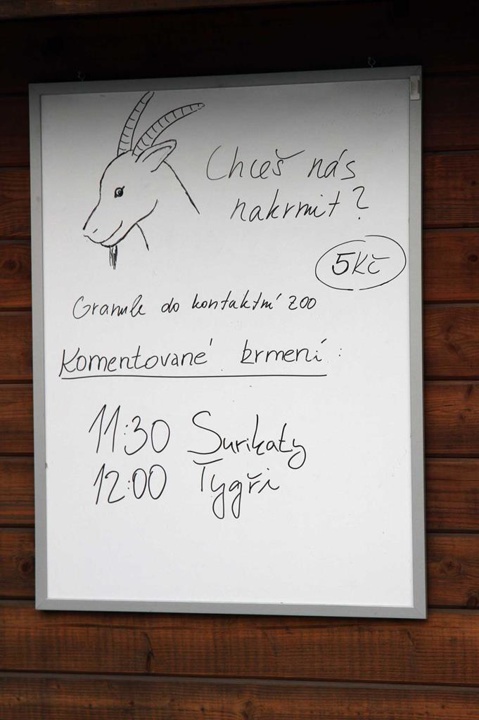 Chceš nás
nakrmit?
5Kč
Granule do kontaktní zoo
Komentované krmení:
11:30 Surikaty
12:00 Tygři